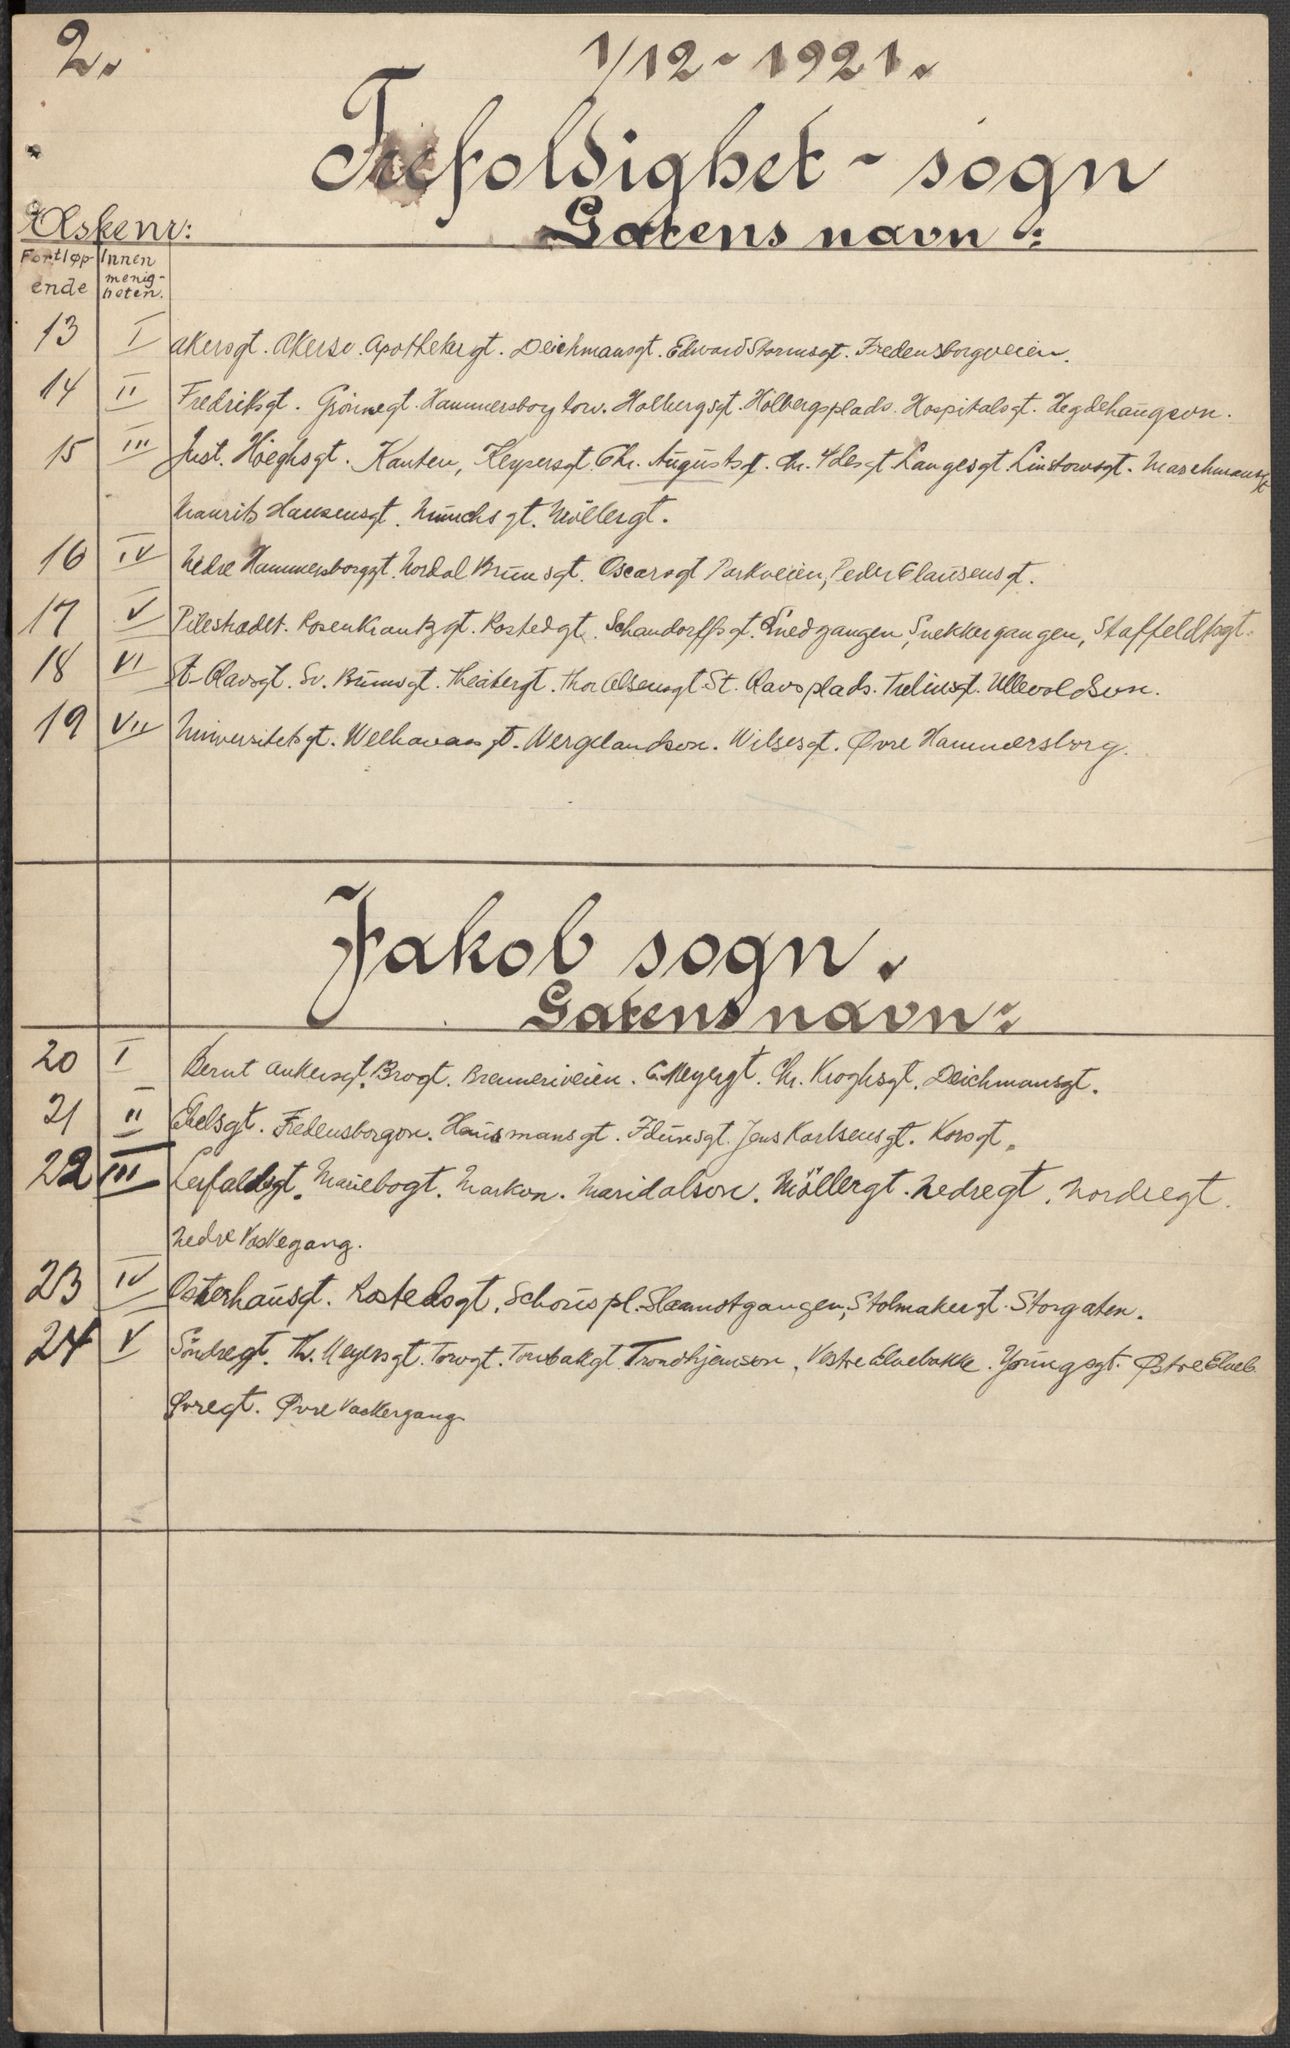 2.
1/12 - 1921.
Trefoldighet - sogn
Æskenr: Gatens navn:
Fortløpende Innen menigheten.
13 I Akersgt. Akersv. Apothekergt. Deichmansgt. Edvard Stormsgt. Fredensborgveien.
14 II Fredriksgt. Grönnegt. Hammersborg torv. Holbergsgt. Holbergsplads. Hospitalsgt. Hegdehaugsvn.
15 III Just. Höeghsgt. Kanten, Keysersgt. Chr. Augustsgt. Langesgt. Linstowsgt.
Maurits Hansensgt. Munchsgt. Möllergt.
16 IV Nedre Hammersborggt. Nordal Brunsgt. Oscarsgt Parkveien, Peder Clausensgt.
17 V Pilestrædet. Rosenkrantzgt. Rostedgt. Schandorffsgt. Smedgangen, Snekkergangen, Staffeldtsgt.
18 VI St. Olavsgt. Sv. Brunsgt. Theatergt. Thor Olsensgt. St. Olavsplads. Tullinsgt. Ullevoldsvn.
19 VII Universitetsgt. Welhavensgt. Wergelandsvn. Wilsesgt. Øvre Hammersborg.
Jakob sogn.
Gatens navn:
20 I Bernt Ankersgt. Brogt. Brenneriveien. C. Meyergt. Chr. Kroghsgt. Deichmansgt.
21 II Eilelsgt. Fredensborgvn. Hausmansgt. Idunsgt. Jens Karlsensgt. Korsgt.
22 III Lerfaldsgt. Mariebogt. Markvn. Maridalsvn. Möllergt. Nedregt. Nordregt.
Nedre Vaskegang.
23 IV Osterhausgt. Rostedsgt. Schouspl. Slamstgangen, Stolmakergt. Storgaten.
24 V Söndregt. Th. Meyersgt. Torvgt. Torvbakgt. Trondhjemsvn. Vestre Elvebakke. Youngsgt. Østre Elveb.
Øvregt. Øvre Vaskergang